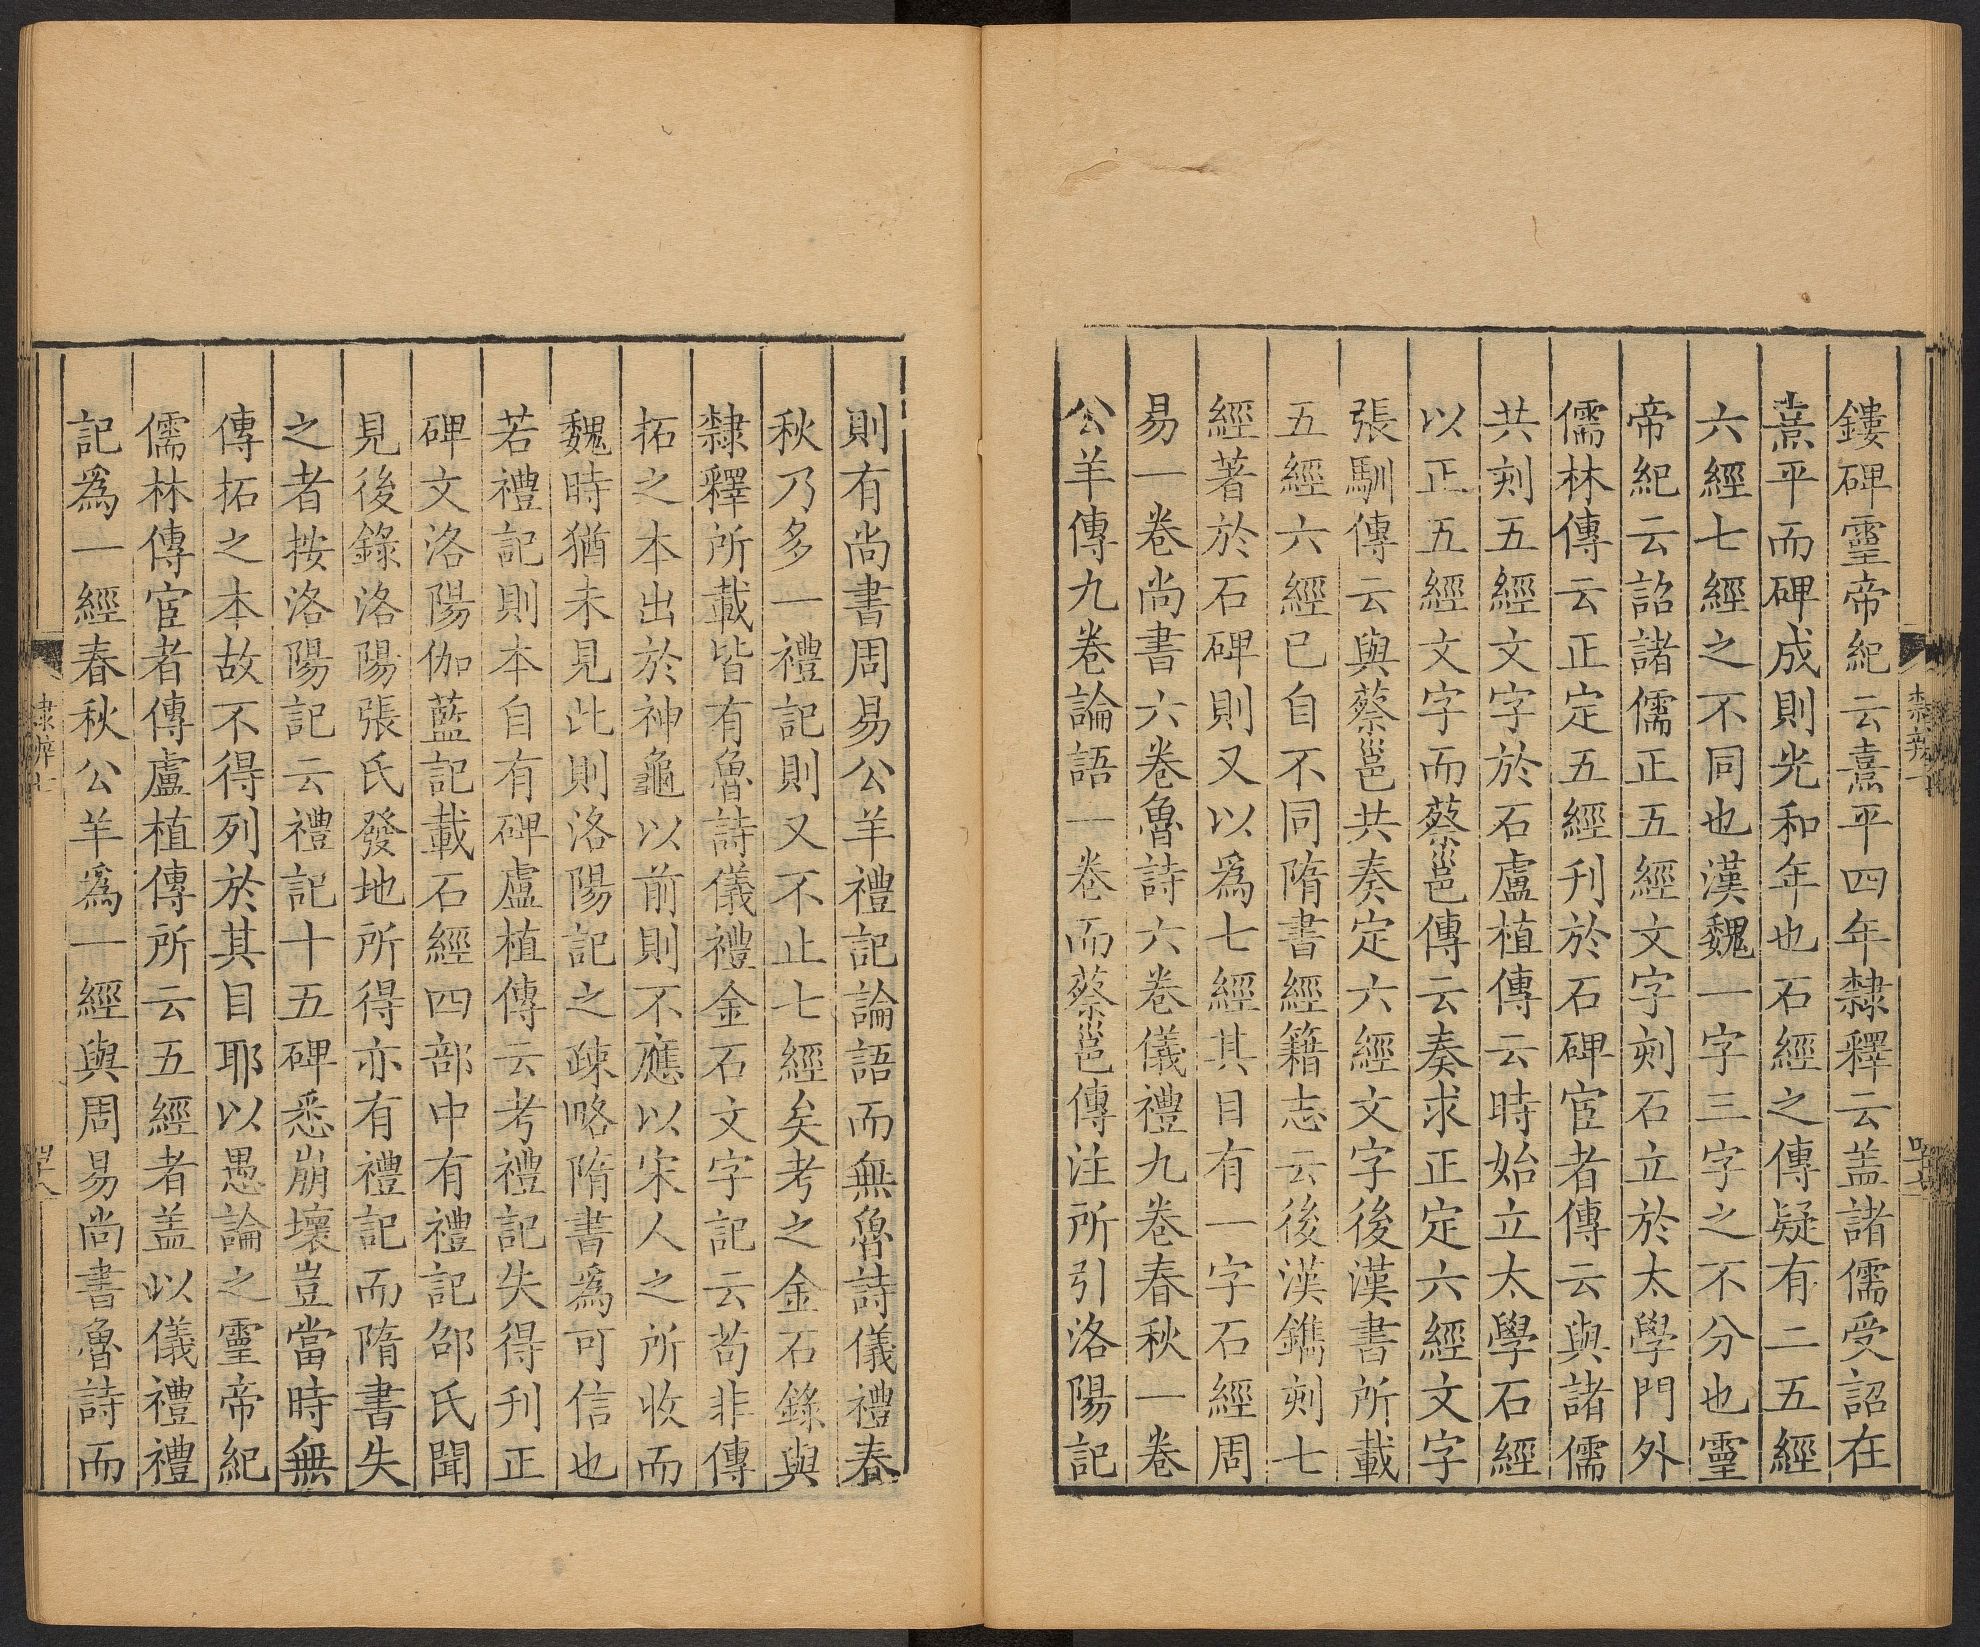 鏤碑靈帝紀云熹平四年隸釋云盖諸儒受詔在
熹平而碑成則光和年也石經之傳疑有二五經
六經七經之不同也漢魏一字三字之不分也靈
帝紀云詔諸儒正五經文字刻石立於太學門外
儒林傳云正定五經刊於石碑宦者傳云與諸儒
共刻五經文字於石盧植傳云時始立太學石經
以正五經文字而蔡邕傳云奏求正定六經文字
張馴傳云與蔡邕共奏定六經文字後漢書所載
五經六經已自不同隋書經籍志云後漢鐫刻七
經著於石碑則又以爲七經其目有一字石經周
易一卷尚書六卷魯詩六卷儀禮九卷春秋一卷
公羊傳九卷論語一卷而蔡邕傳注所引洛陽記
則有尚書周易公羊禮記論語而無魯詩儀禮春
秋乃多一禮記則又不止七經矣考之金石錄與
隸釋所載皆有魯詩儀禮金石文字記云苟非傳
拓之本出於神龜以前則不應以宋人之所收而
魏時猶未見此則洛陽記之疎略隋書爲可信也
若禮記則本自有碑盧植傳云考禮記失得刊正
碑文洛陽伽藍記載石經四部中有禮記邵氏聞
見後錄洛陽張氏發地所得亦有禮記而隋書失
之者按洛陽記云禮記十五碑悉崩壞豈當時無
傳拓之本故不得列於其目耶以愚論之靈帝紀
儒林傳宦者傳盧植傳所云五經者盖以儀禮禮
記爲一經春秋公羊爲一經與周易尚書魯詩而